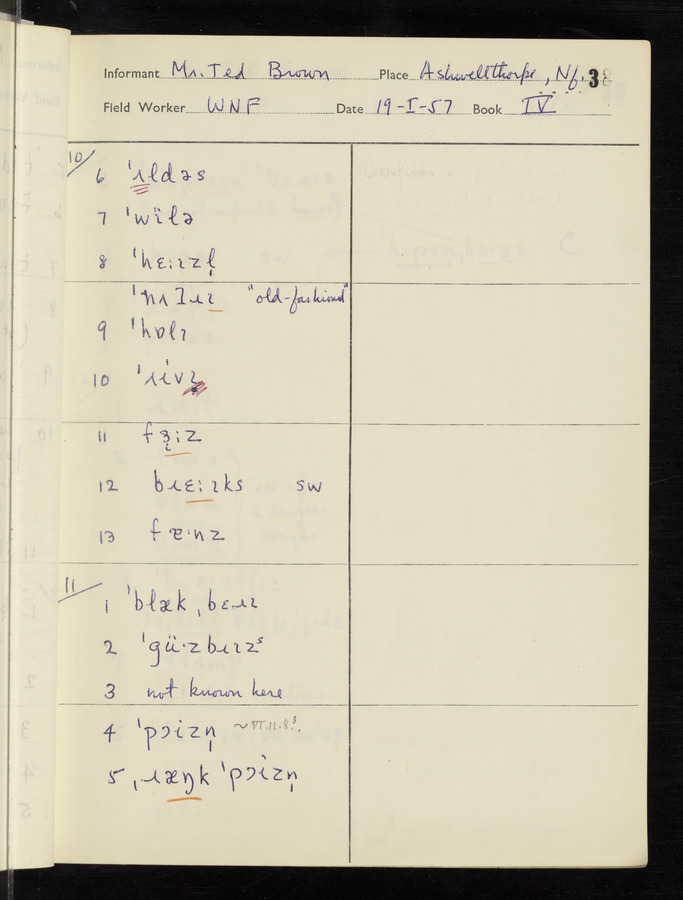 Informant Mr. Ted Brown Place Ashwellthorpe, Nf. 38
Field Worker WNF Date 19-I-57 Book IV
10/
6 ˈɹldəs
7 ˈwïlə
8 ˈhɛːɪzl̩
"old-fashiond"
9 ˈhɒlɪ
10
11 fɜ̨ːz
12 bɹɛːɪks sw
13 fæˑnz
11/
1 ˈblæk ˌbɛɹɪ
2 ˈgüˑzbɹɪzˢ
3 not known here
4 ˈpɔizn̩ ~VI.11.8³.
5 ˌɹæŋk ˈpɔizn̩